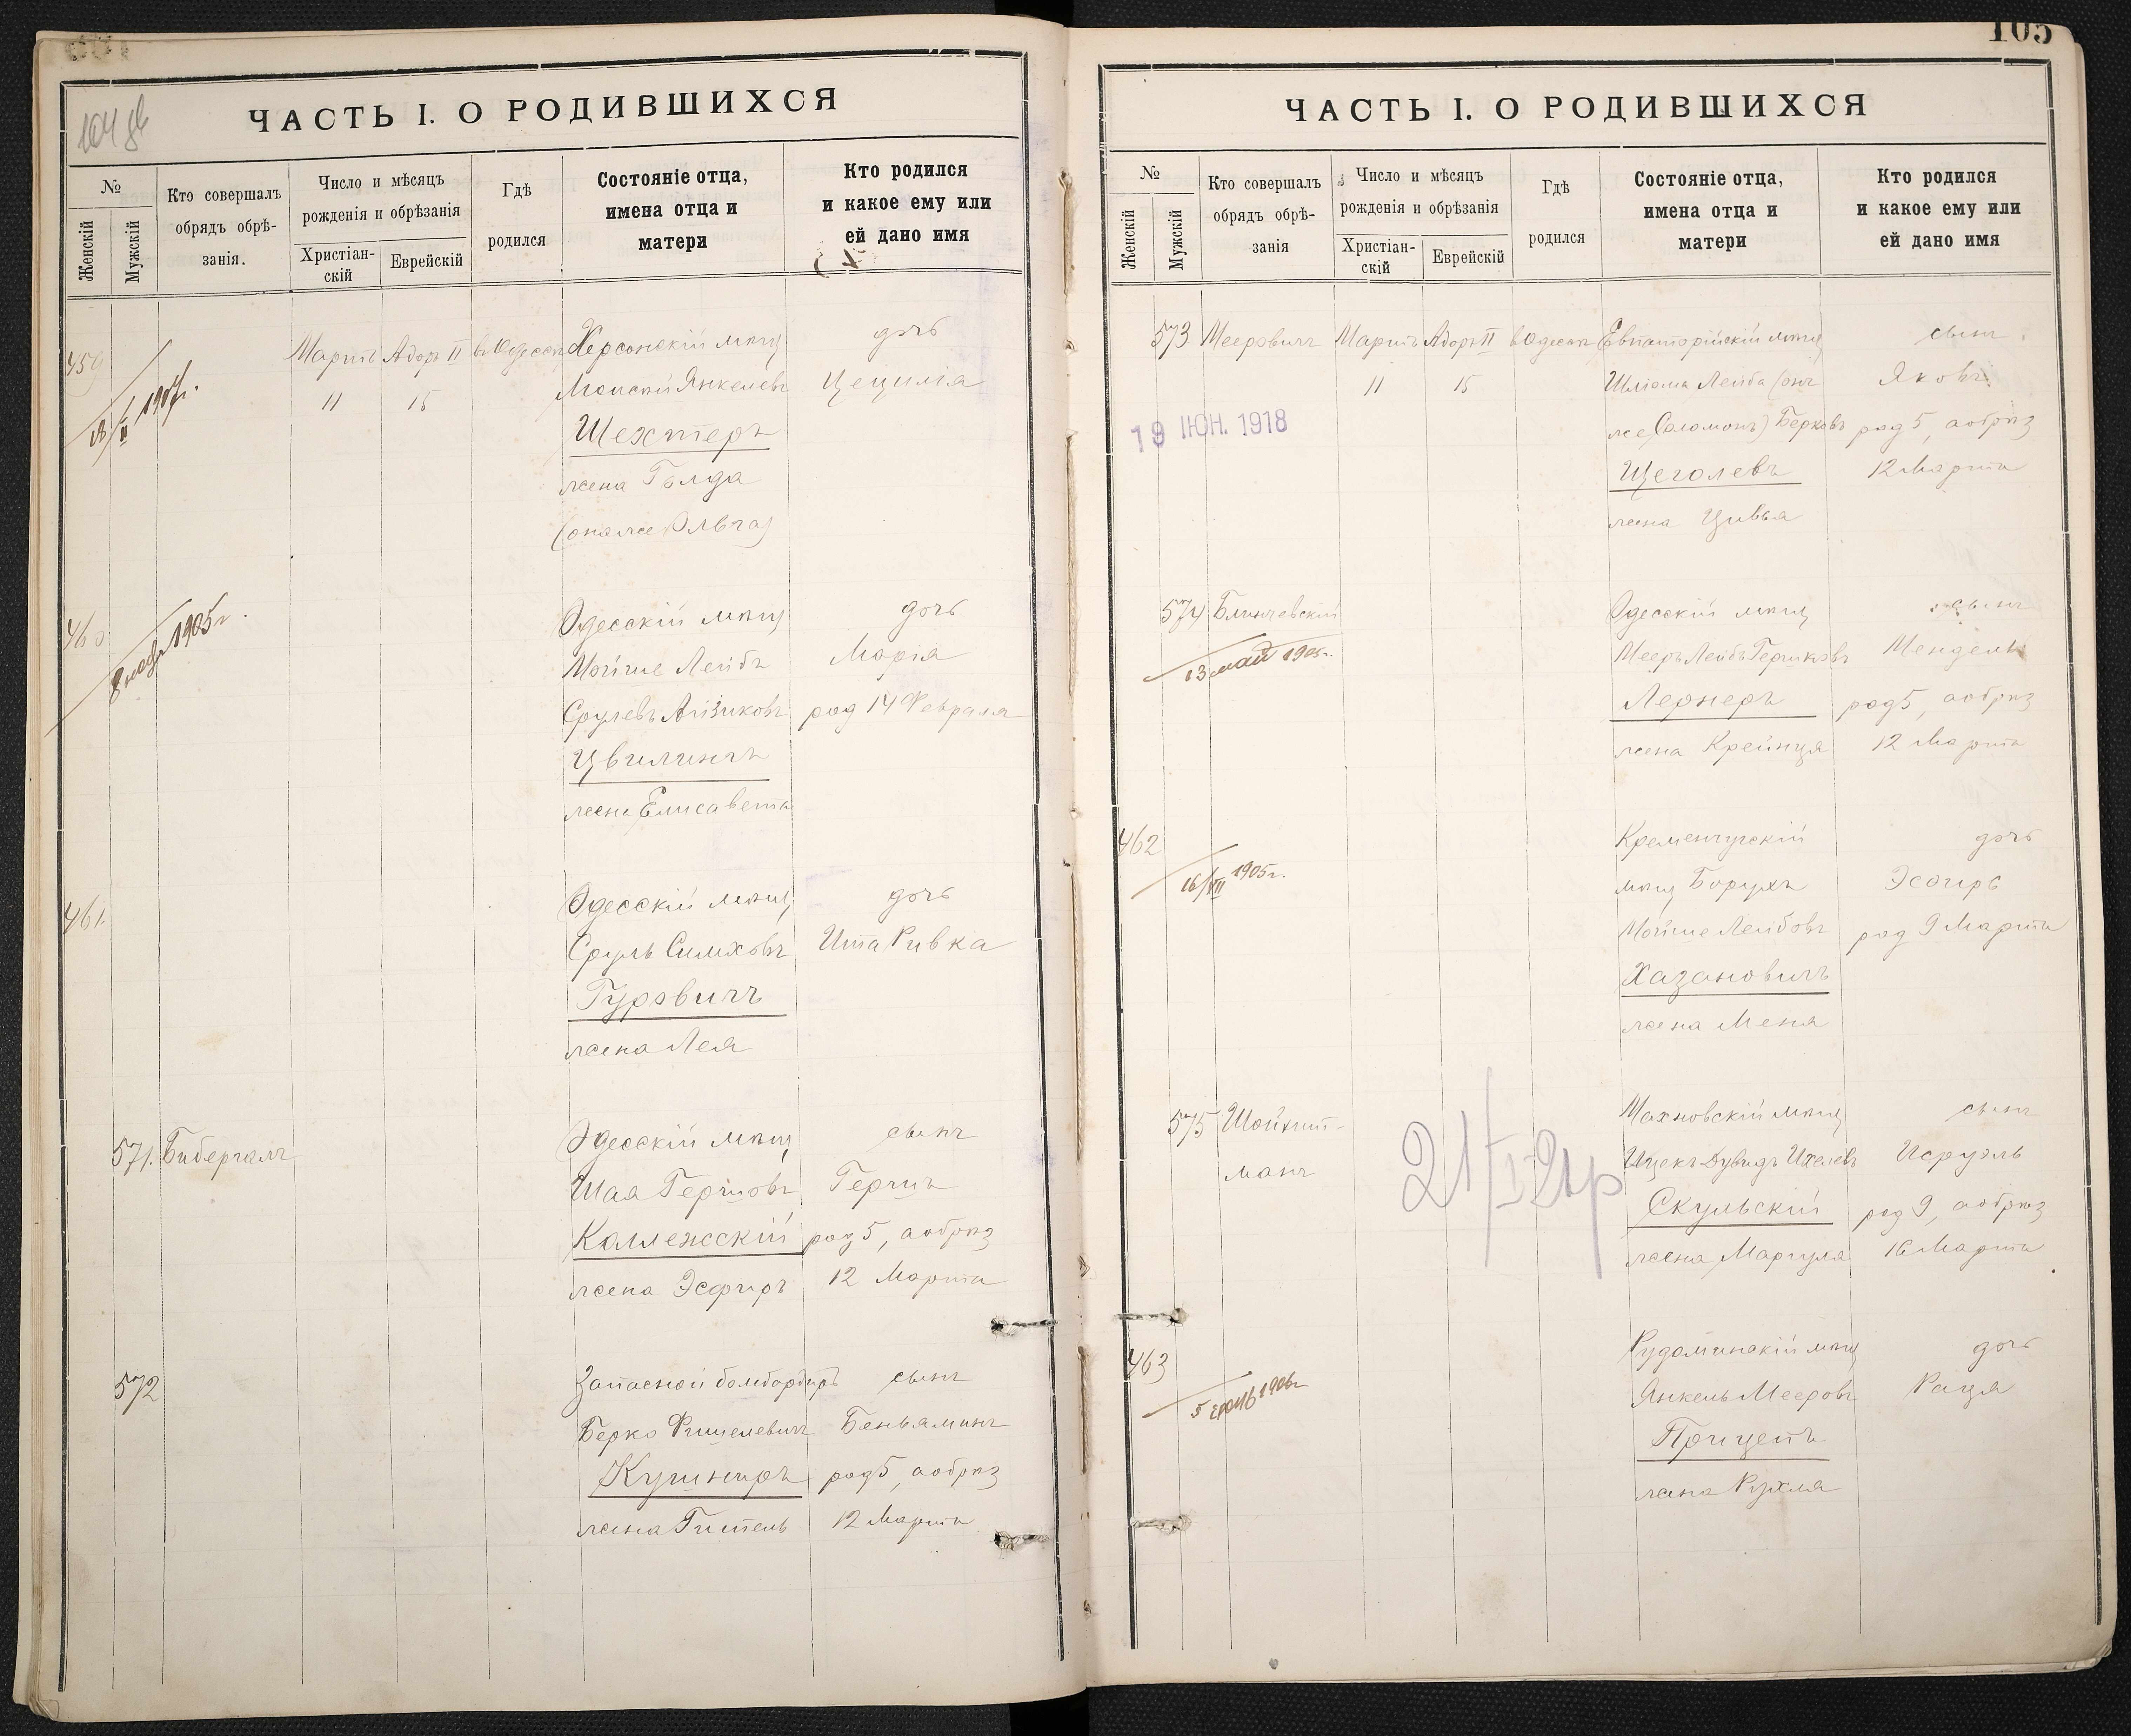 ЧАСТЬ I. О РОДИВШИХСЯ
№
Женскій
Мужскій
Кто совершалъ
обрядъ обрѣ-
занія.
Число и мѣсяцъ
рожденія и обрѣзанія
Христіан-
скій
Еврейскій
Гдѣ
родился
Состояніе отца,
имена отца и
матери
Кто родился
и какое ему или
ей дано имя
459
Мартъ
11
Адоръ II
15
въ Одессѣ
Херсонскій мѣщ
Янкелевъ
Шехтеръ
жена Голда
(она же Ольга)
дочь
Цецилія
460
1905г.
Одесскій мѣщ
Мойше Лейбъ
Срулевъ Айзиковъ
Цвилингъ
жена Елисавета
дочь
Марія
род 14 Февраля
461.
Одесскій мѣщ
Сруль Симховъ
Гуровичъ
жена Лея
дочь
Ита Ривка
571.
Бибергалъ
Одесскій мѣщ
Шая Гершовъ
жена Эсфирь
сынъ
Гершъ
род 5, а обрѣз
12 Марта
572
Запасной бомбардиръ
Берко Фишелевичъ
Кушниръ
жена Гитель
сынъ
Беньяминъ
род 5, а обрѣз
12 Марта
105
ЧАСТЬ I. О РОДИВШИХСЯ
№
Женскій
Мужскій
Кто совершалъ
обрядъ обрѣ-
занія
Число и мѣсяцъ
рожденія и обрѣзанія
Христіан-
скій
Еврейскій
Гдѣ
родился
Состояніе отца,
имена отца и
матери
Кто родился
и какое ему или
ей дано имя
573
Мееровичъ
19 ІЮН. 1918
Мартъ
11
Адоръ II
15
въ Одессѣ
Евпаторійскій мѣщ
Шлiома Лейба (онъ
же Саломонъ) Берковъ
Щеголевъ
жена Цивья
сынъ
Яковъ
род 5, а обрѣз
12 Марта
574
Блинчевскій
13 май 1905г.
Одесскій мѣщ
Мееръ Лейбъ Гершковъ
Лернеръ
жена Крейнця
сынъ
Мендель
род 5, а обрѣз
12 Марта
462
16/VII 1905г.
Кременчугскій
мѣщ Борухъ
Мойше Лейбовъ
Хазановичъ
жена Меня
дочь
Эсфирь
род 9 Марта
575
Шойхит-
манъ
Махновскій мѣщ
Ицекъ Дувидъ Ихелевъ
Скульскій
жена Маргуля
сынъ
Исруэль
род 9, а обрѣз
16 Марта
463
1906г
Рудоминскій мѣщ
Янкель Мееровъ
Прицепъ
жена Рухля
дочь
Раця